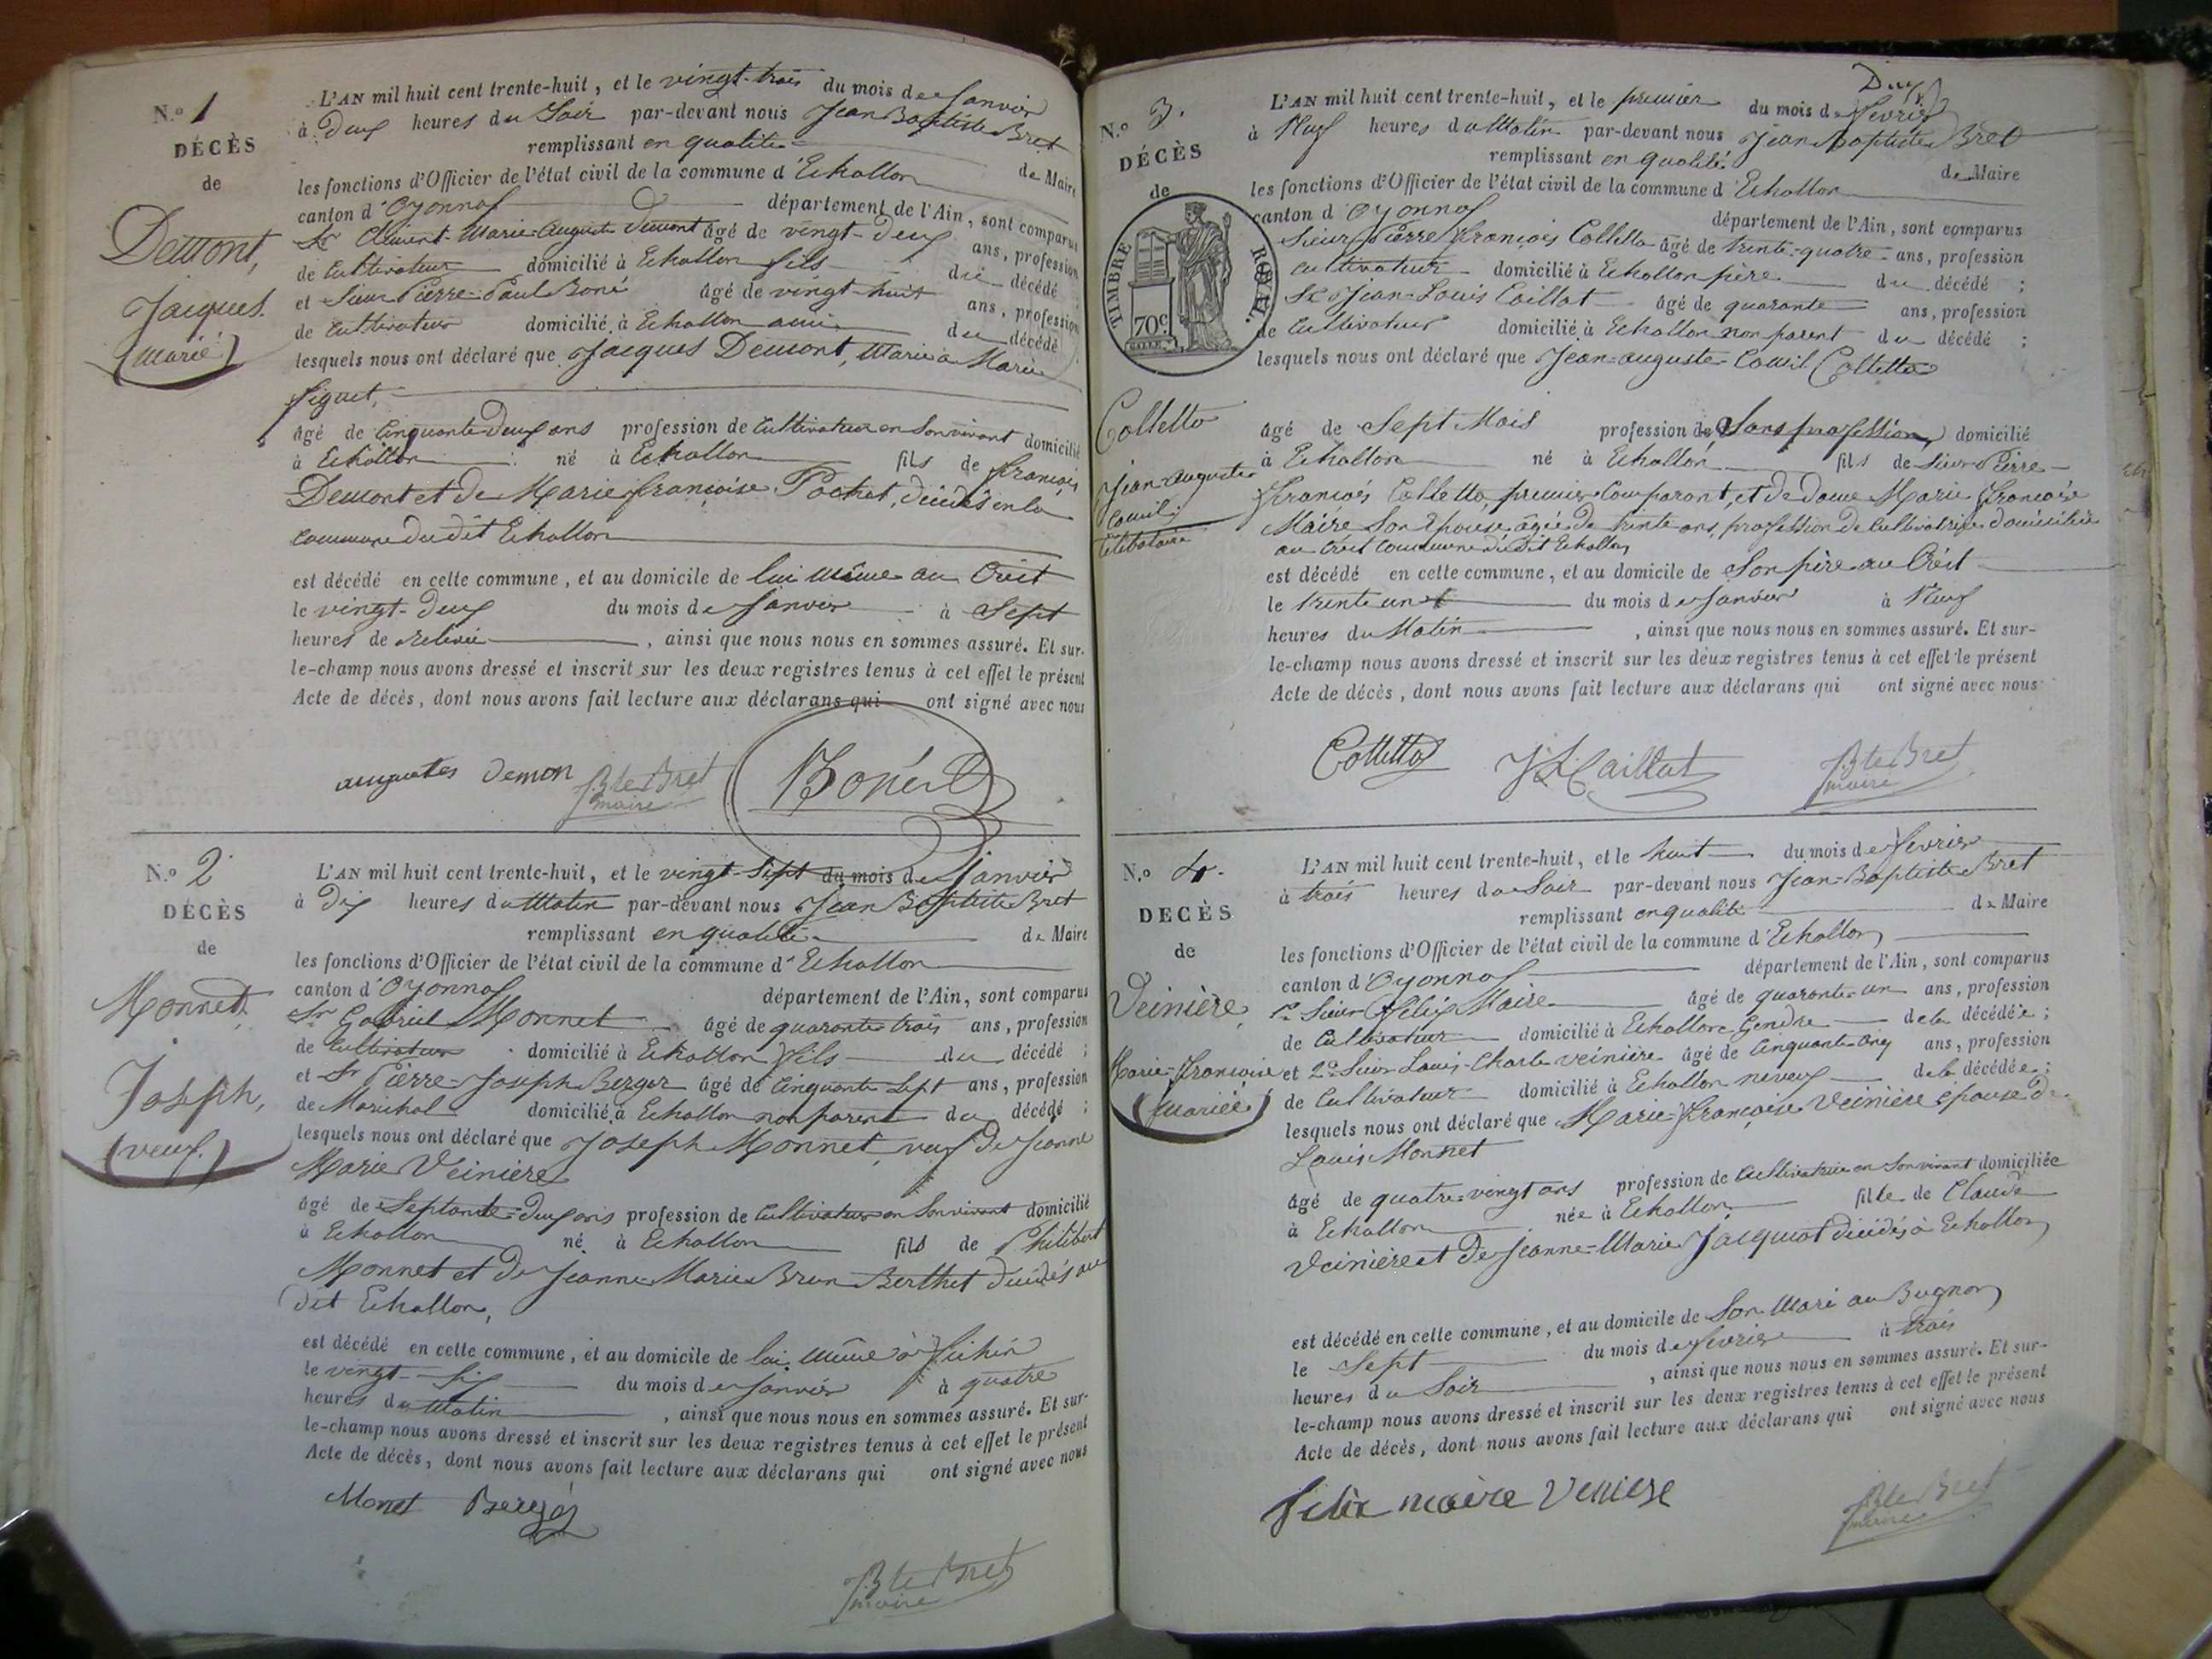 N.º 1
DÉCÈS
de
Demont,
Jacques.
(marié)
L'AN mil huit cent trente-huit, et le vingt-trois du mois de Janvier
à Deux heures du Soir par-devant nous Jean Baptiste Bret
remplissant en qualité de Maire
les fonctions d'Officier de l'état civil de la commune d'Echallon
canton d'Oyonnax département de l'Ain, sont comparus
Sr Clément-Marie-Auguste Demont âgé de vingt-deux ans, profession
de Cultivateur domicilié à Echallon fils du décédé
et Sieur Pierre-Paul Boné âgé de vingt-huit ans, profession
de Cultivateur domicilié à Echallon ami du décédé
lesquels nous ont déclaré que Jacques Demont, Marié à Marie
Figuet,
âgé de Cinquante Deux ans profession de Cultivateur en Son vivant domicilié
à Echallon né à Echallon fils de François
Demont et de Marie françoise Pochet, décédés en la
commune du dit Echallon
est décédé en cette commune, et au domicile de lui même au Crêt
le vingt-deux du mois de Janvier à Sept
heures de relevée, ainsi que nous nous en sommes assuré. Et sur-
le-champ nous avons dressé et inscrit sur les deux registres tenus à cet effet le présent
Acte de décès, dont nous avons fait lecture aux déclarans qui ont signé avec nous
auguetes Demon JBte Bret Boné
maire
N.º 2
DÉCÈS
de
Monnet,
Joseph,
(veuf.)
L'AN mil huit cent trente-huit, et le vingt-Sept du mois de Janvier
à Dix heures du Matin par-devant nous Jean Baptiste Bret
remplissant en qualité de Maire
les fonctions d'Officier de l'état civil de la commune d'Echallon
canton d'Oyonnax département de l'Ain, sont comparus
Sr Gabriel Monnet âgé de quarante trois ans, profession
de Cultivateur domicilié à Echallon fils du décédé ;
et Sr Pierre-Joseph Berger âgé de Cinquante-Sept ans, profession
de Maréchal domicilié à Echallon non parent du décédé ;
lesquels nous ont déclaré que Joseph Monnet, veuf de Jeanne
Marie Veinière
âgé de Septante-deux ans profession de Cultivateur en Son vivant domicilié
à Echallon né à Echallon fils de Philibert
Monnet et de Jeanne Marie Brun Berthet décédés au
dit Echallon,
est décédé en cette commune, et au domicile de lui même à
le vingt-Six du mois de Janvier à quatre
heures du Matin, ainsi que nous nous en sommes assuré. Et sur-
le-champ nous avons dressé et inscrit sur les deux registres tenus à cet effet le présent
Acte de décès, dont nous avons fait lecture aux déclarans qui ont signé avec nous
Monet Berger
JBte Bret
maire
N.º 3.
DÉCÈS
de
TIMBRE ROYAL.
70c
Colletta
Jean-Auguste
célibataire
Deux
L'AN mil huit cent trente-huit, et le premier du mois de Fevrier
à Neuf heures du Matin par-devant nous Jean Baptiste Bret
remplissant en qualité de Maire
les fonctions d'Officier de l'état civil de la commune d'Echallon
canton d'Oyonnax département de l'Ain, sont comparus
Sieur Pierre François Colletta âgé de trente-quatre ans, profession
cultivateur domicilié à Echallon père du décédé ;
Sr Jean-Louis Caillat âgé de quarante ans, profession
de Cultivateur domicilié à Echallon non parent du décédé ;
lesquels nous ont déclaré que Jean-Auguste Colletta
âgé de Sept Mois profession de Sans profession domicilié
à Echallon né à Echallon fils de Sieur Pierre
François Colletta, premier Comparant, et de dame Marie Françoise
Maire Son Epouse âgée de trente ans, profession de Cultivatrice domiciliée
au Crêt commune du dit Echallon
est décédé en cette commune, et au domicile de Son père au Crêt
le trente un du mois de Janvier à Neuf
heures du Matin, ainsi que nous nous en sommes assuré. Et sur-
le-champ nous avons dressé et inscrit sur les deux registres tenus à cet effet le présent
Acte de décès, dont nous avons fait lecture aux déclarans qui ont signé avec nous
Colletta JL Caillat JBte Bret
maire
N.º 4.
DECÈS
de
Veinière,
Marie-Françoise
(mariée)
L'AN mil huit cent trente-huit, et le huit du mois de Fevrier
à trois heures du Soir par-devant nous Jean-Baptiste Bret
remplissant en qualité de Maire
les fonctions d'Officier de l'état civil de la commune d'Echallon
canton d'Oyonnax département de l'Ain, sont comparus
1º Sieur Félix Maire âgé de quarante-un ans, profession
de Cultivateur domicilié à Echallon Gendre de la décédée ;
et 2º Sieur Louis-Charle veinière âgé de Cinquante Cinq ans, profession
de Cultivateur domicilié à Echallon neveux de la décédée ;
lesquels nous ont déclaré que Marie-Françoise Veinière épouse de
Louis Monnet
âgé de quatre-vingt ans profession de Cultivatrice en Son vivant domiciliée
à Echallon née à Echallon fille de Claude
Veinière et de Jeanne-Marie Jacquiot décédés à Echallon
est décédé en cette commune, et au domicile de Son Mari au Bugnon
le Sept du mois de Fevrier à trois
heures du Soir, ainsi que nous nous en sommes assuré. Et sur-
le-champ nous avons dressé et inscrit sur les deux registres tenus à cet effet le présent
Acte de décès, dont nous avons fait lecture aux déclarans qui ont signé avec nous
Felix maire Veniere JBte Bret
maire